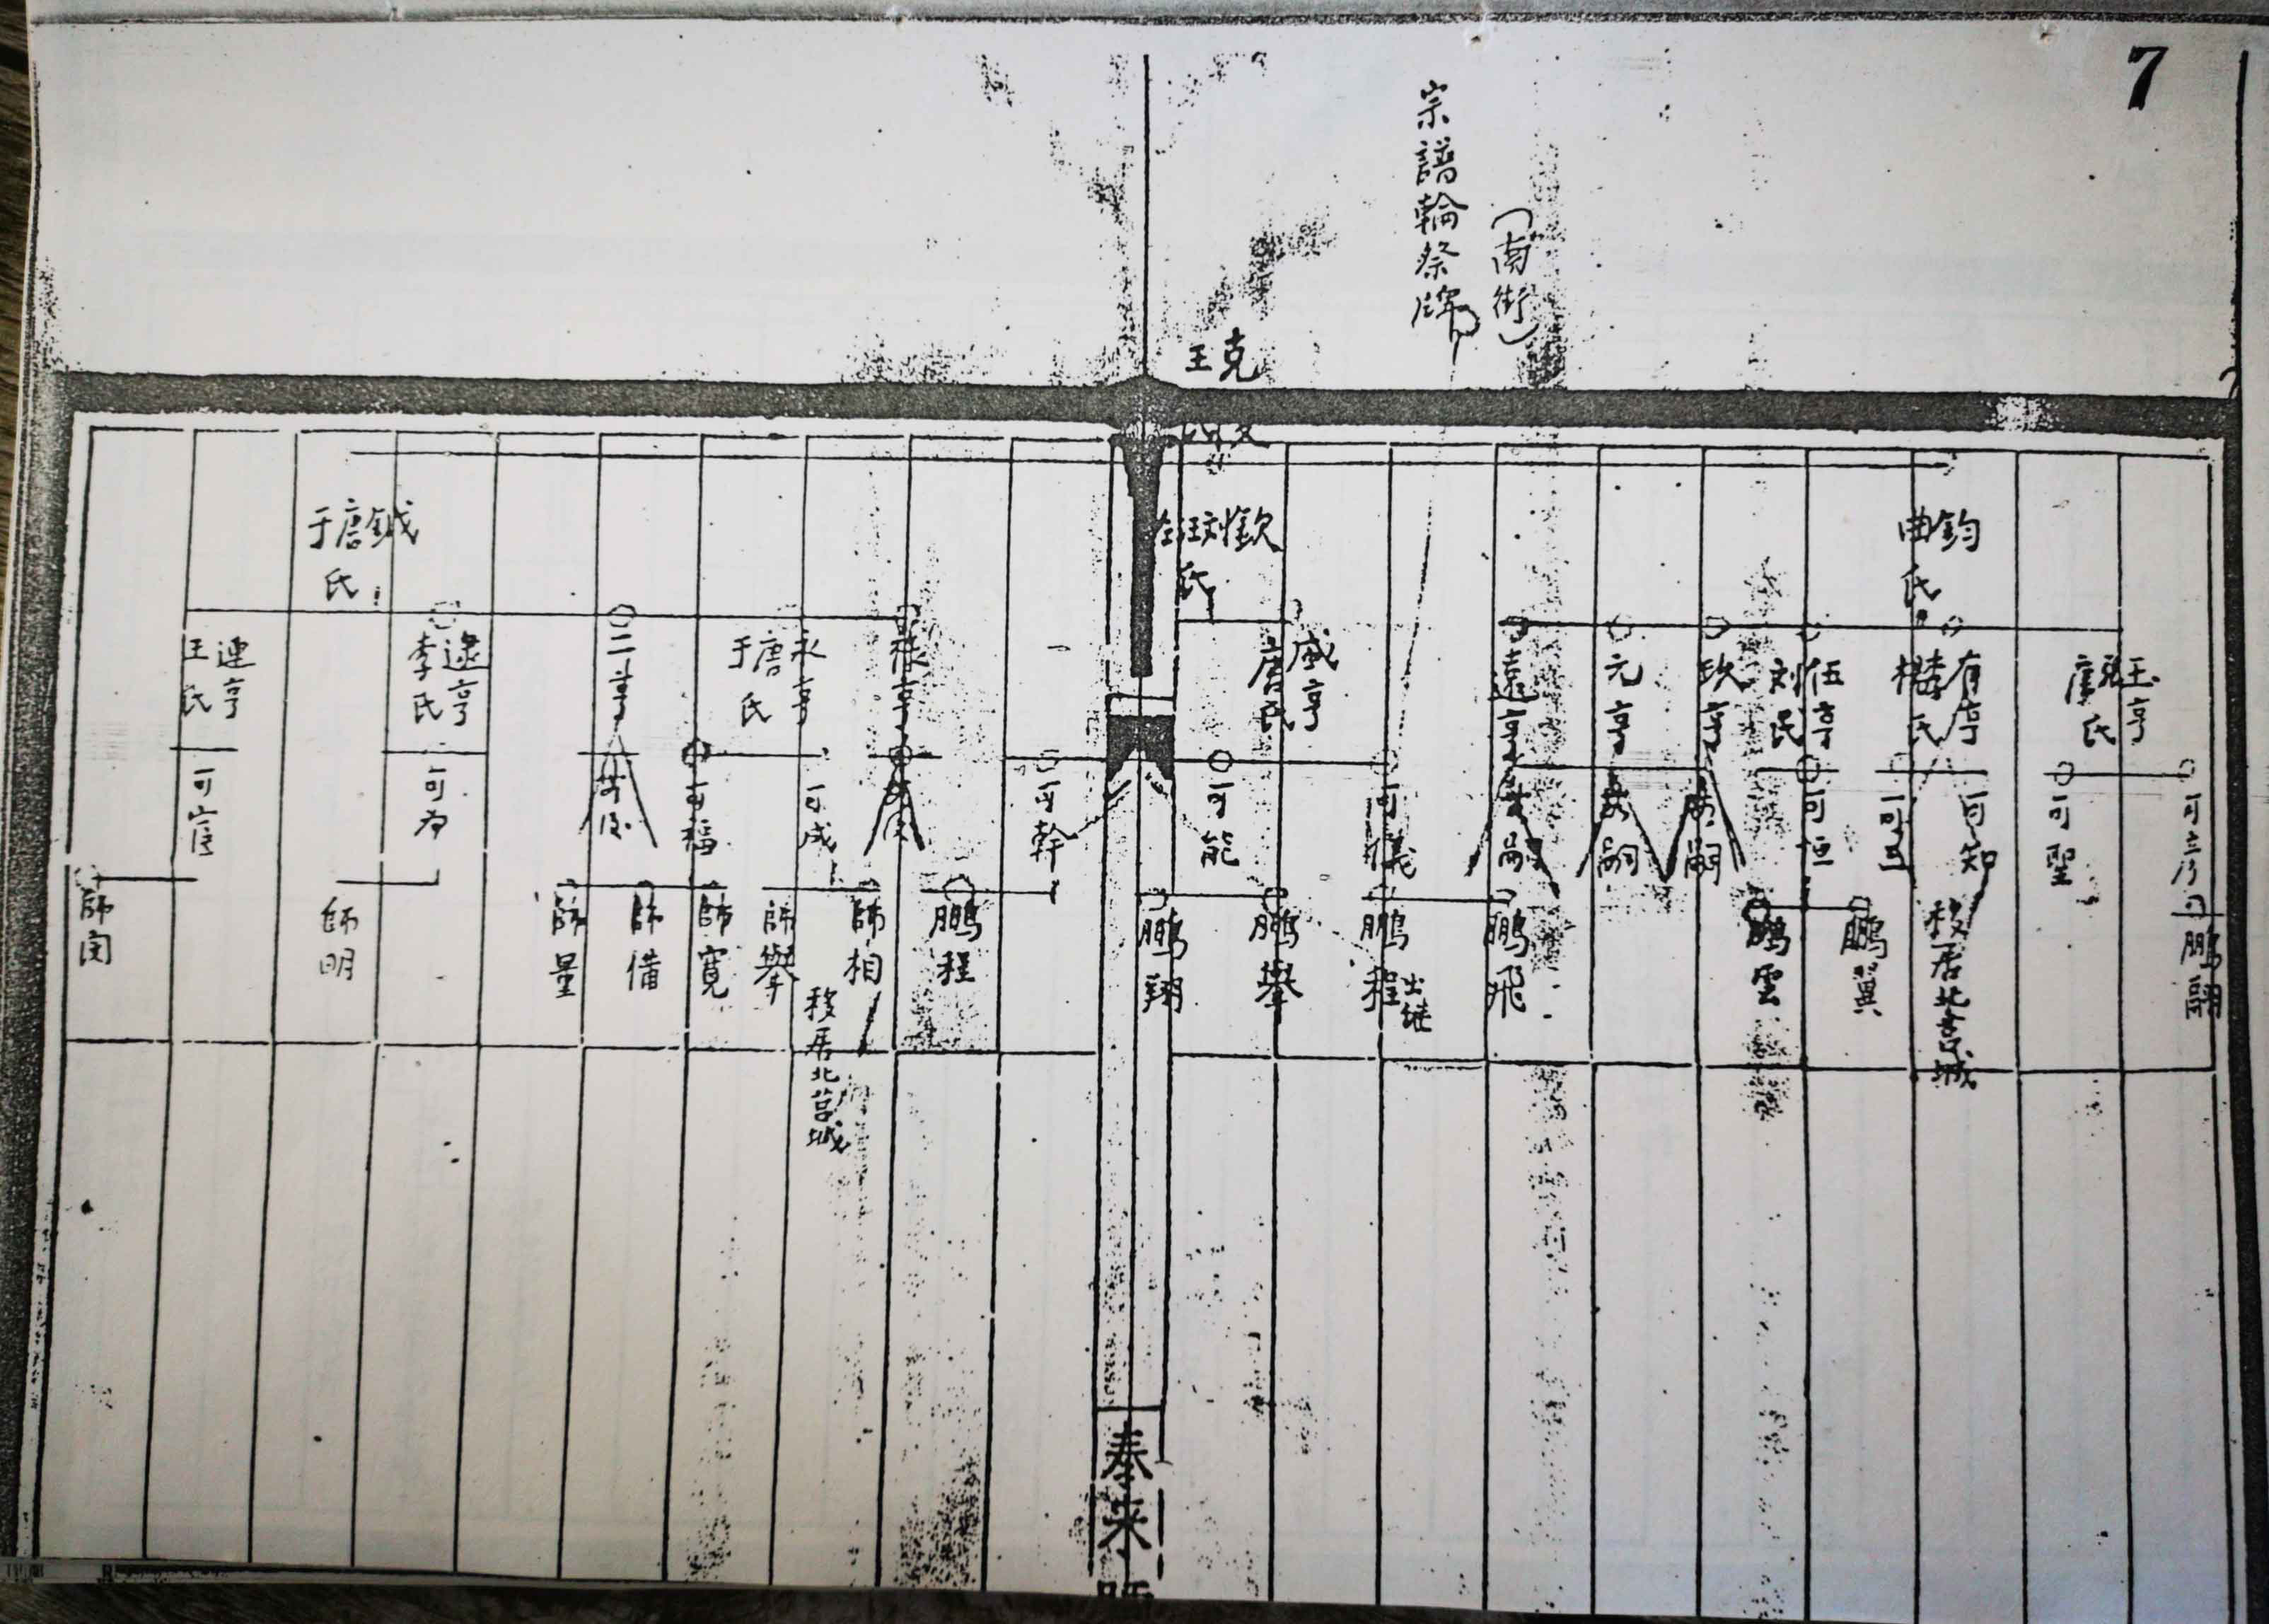 7
宗譜輪祭牌
(南街)
王克
氏
曲鈞
氏
欽刘汪
氏
鉞唐于
氏
王亨
唐氏
有亨
氏
伍亨
刘氏
玖亨
元亨
遠亨
威亨
唐氏
祿亨
永亨
唐于
氏
二亨
逯亨
李氏
連亨
王氏
可彦
可聖
可知
可五
可恒
嗣
嗣
嗣
可儀
可能
可幹
可成
可福
可為
可官
鵬翮
移居北莒城
鵬翼
鵬雲
鵬飛
鵬程出继
鵬舉
鵬翔
鵬程
師相
移居北莒城
師舉
師寛
師備
師量
師明
師闵
奉来